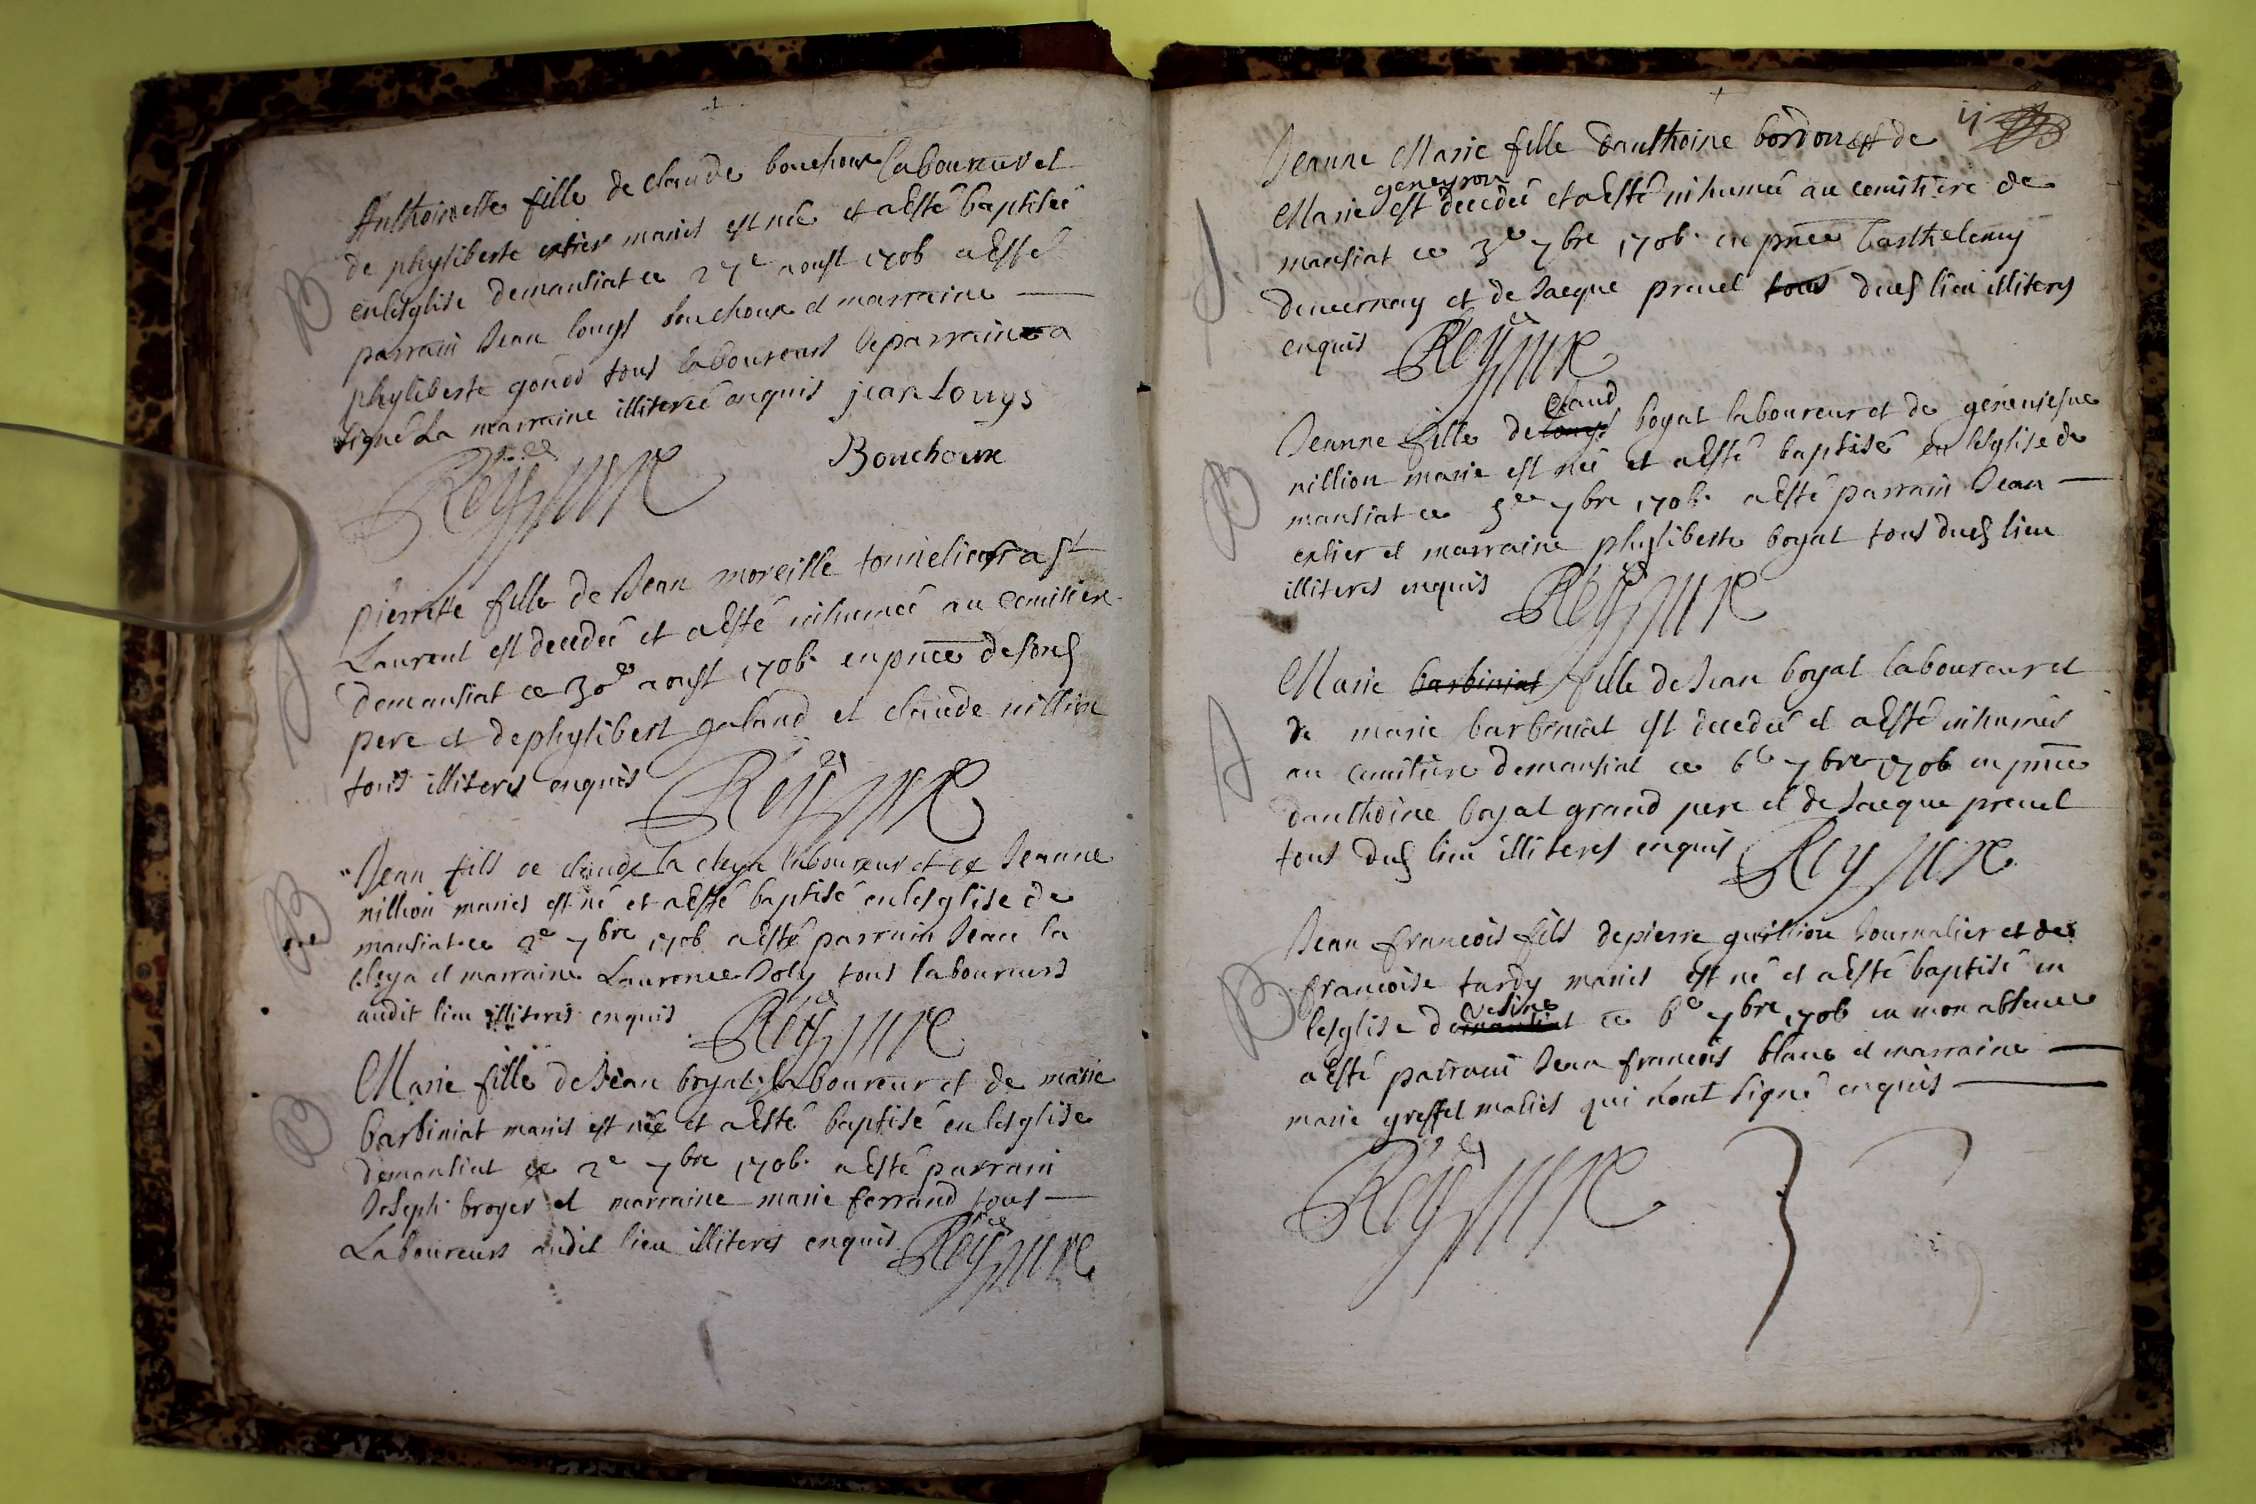 B
Anthoinette fille de claude bouchoux laboureur et
de phyliberte extier mariés est née et a Esté baptisée
en lesglise demansiat ce 27e aoust 1706 a Esté
parrain Jean louys bouchoux et marraine
phyliberte gonod tous laboureurs le parrain a
signé La marraine illiterée enquis jean Louys
Bouchoux
Rey cure
Pierrette fille de Jean moreille tonnelier a St
Laurent est decedeé et a Esté inhumeé au cemitiere
demansiat ce 30e aoust 1706 en pnce de sond
pere et de phylibert galand et claude nillion
tous illiteres enquis
Rey cure
B
Jean fils de claude la cleya laboureur et de Jeanne
nillion mariés est né et a Esté baptisé en lesglise de
mansiat ce 2e 7bre 1706 a Esté parrain Jean la
cleya et marraine Laurence Joly tous laboureurs
audit lieu illiteres enquis
Rey cure
B
Marie fille de Jean boyat laboureur et de marie
barbiniat mariés est née et a Esté baptisé en lesglise
demansiat ce 2e 7bre 1706 a Esté parrain
Joseph broyer et marraine marie ferrand tous
Laboureurs audit lieu illiteres enquis
Rey cure
Jeanne Marie fille danthoine bordon et de
Marie geneyron est decedeé et a Esté inhumeé au cemitiere de
mansiat ce 3e 7bre 1706 en pnce barthelemy
duvernay et de Jacque prevel tous dud lieu illiteres
enquis
Rey cure
B
Jeanne fille de louys claud boyat laboureur et de
nillion marié est née et a Esté baptisé en lesglise de
mansiat ce 5e 7bre 1706 a Esté parrain Jean
extier et marraine phyliberte boyat tous dud lieu
illiteres enquis
Rey cure
Marie barbiniat fille de Jean boyat laboureur et
de marie barbiniat est decedeé et a Esté inhumée
au cemitiere demansiat ce 6e 7bre 1706 en pnce
danthoine boyat grand pere et de Jacque prevel
tous dud lieu illiteres enquis
Rey cure
B
Jean francois fils de pierre guillion Journalier et de
francoise tardy mariés est né et a Esté baptisé en
lesglise de mansiat vesine ce 6e 7bre 1706 en mon absence
a Esté parrain Jean francois blanc et marraine
marie greffet mariés qui nont signé enquis
Rey cure